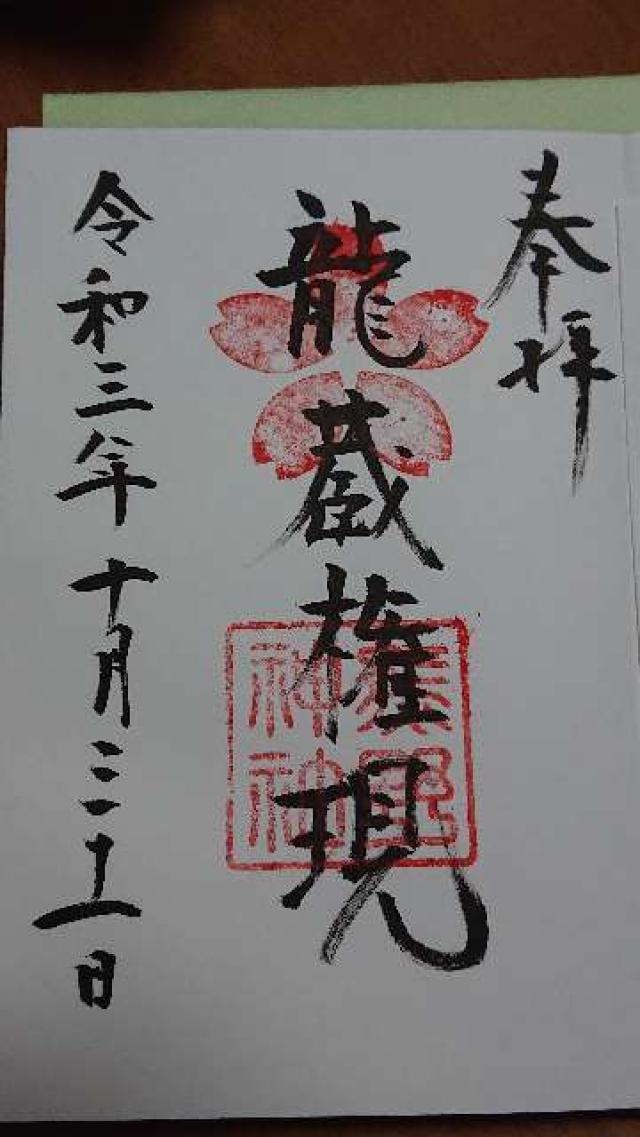 奉拝
龍蔵権現
令和三年十月三十一日